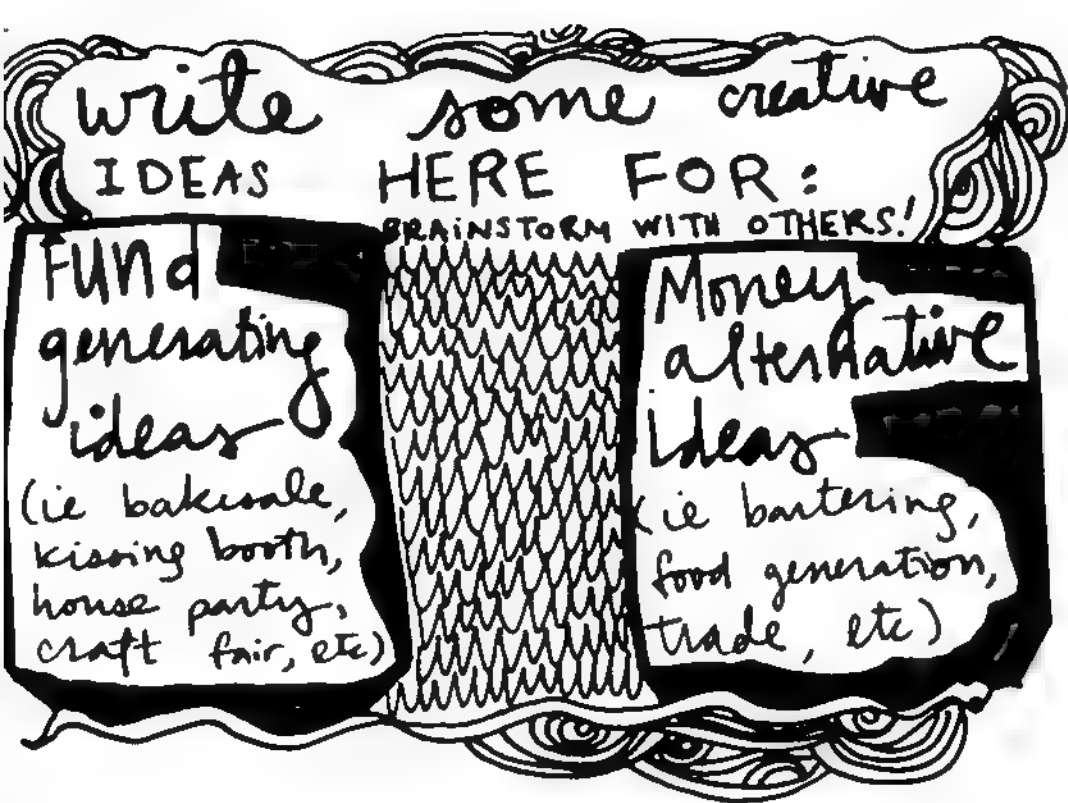 write some creative
IDEAS HERE FOR:
BRAINSTORM WITH OTHERS!
FUNd
generating
ideas
(ie bakesale,
kissing booth,
house party,
craft fair, etc)
Money
alternative
ideas
(ie bartering,
food generation,
trade, etc)